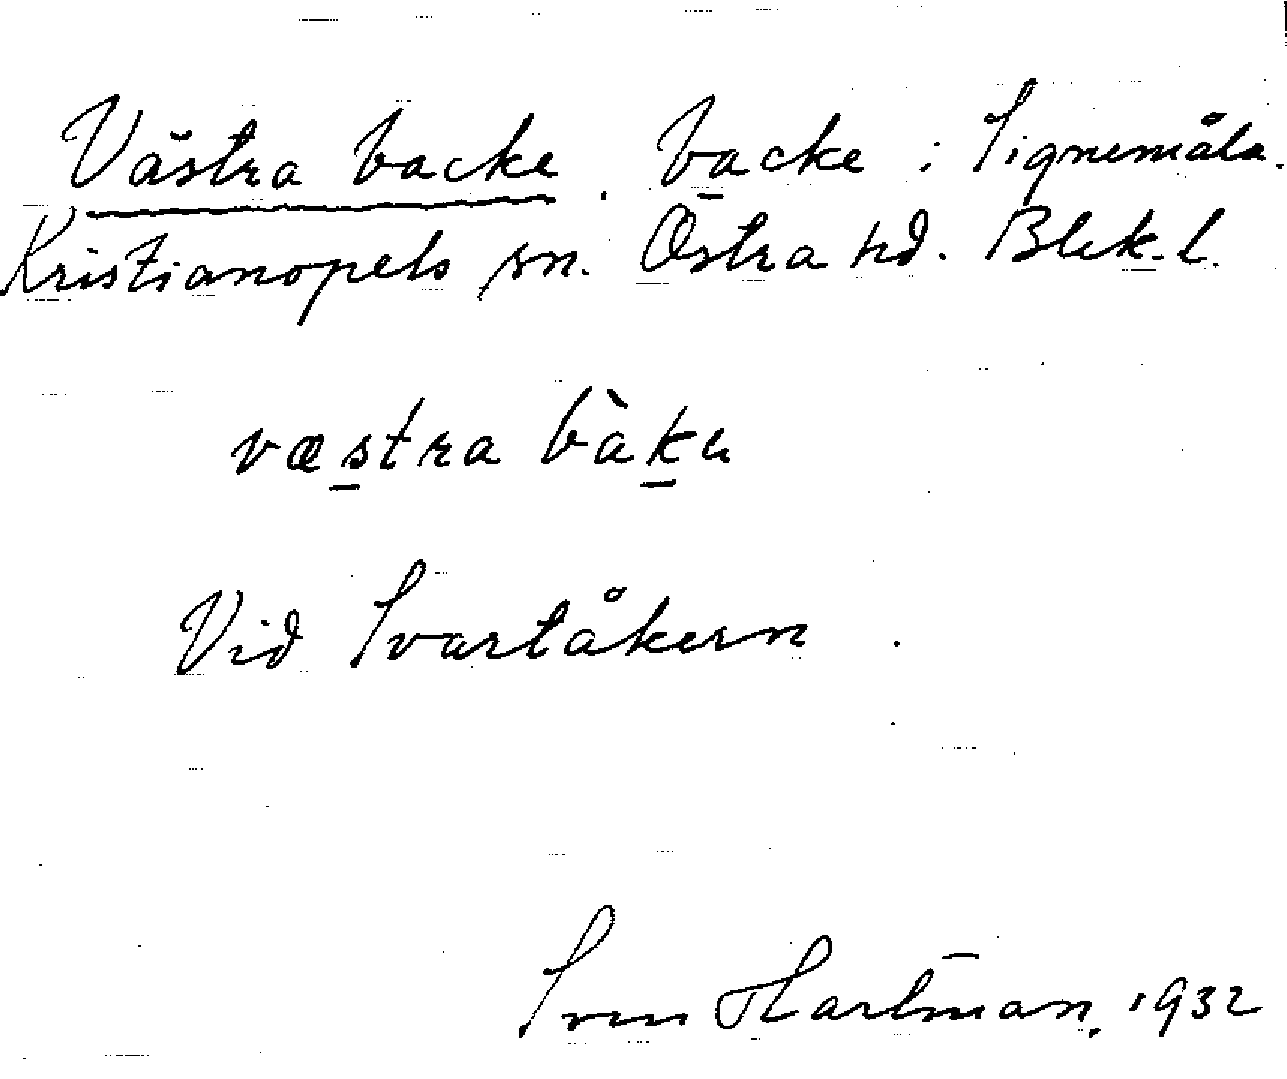 Västra backe. backe i Signemåla.
Kristianopels sn. Östra hd. Blek. l.
væstra bàkɛ
Vid Svartåkern.
Sven Hartman, 1932